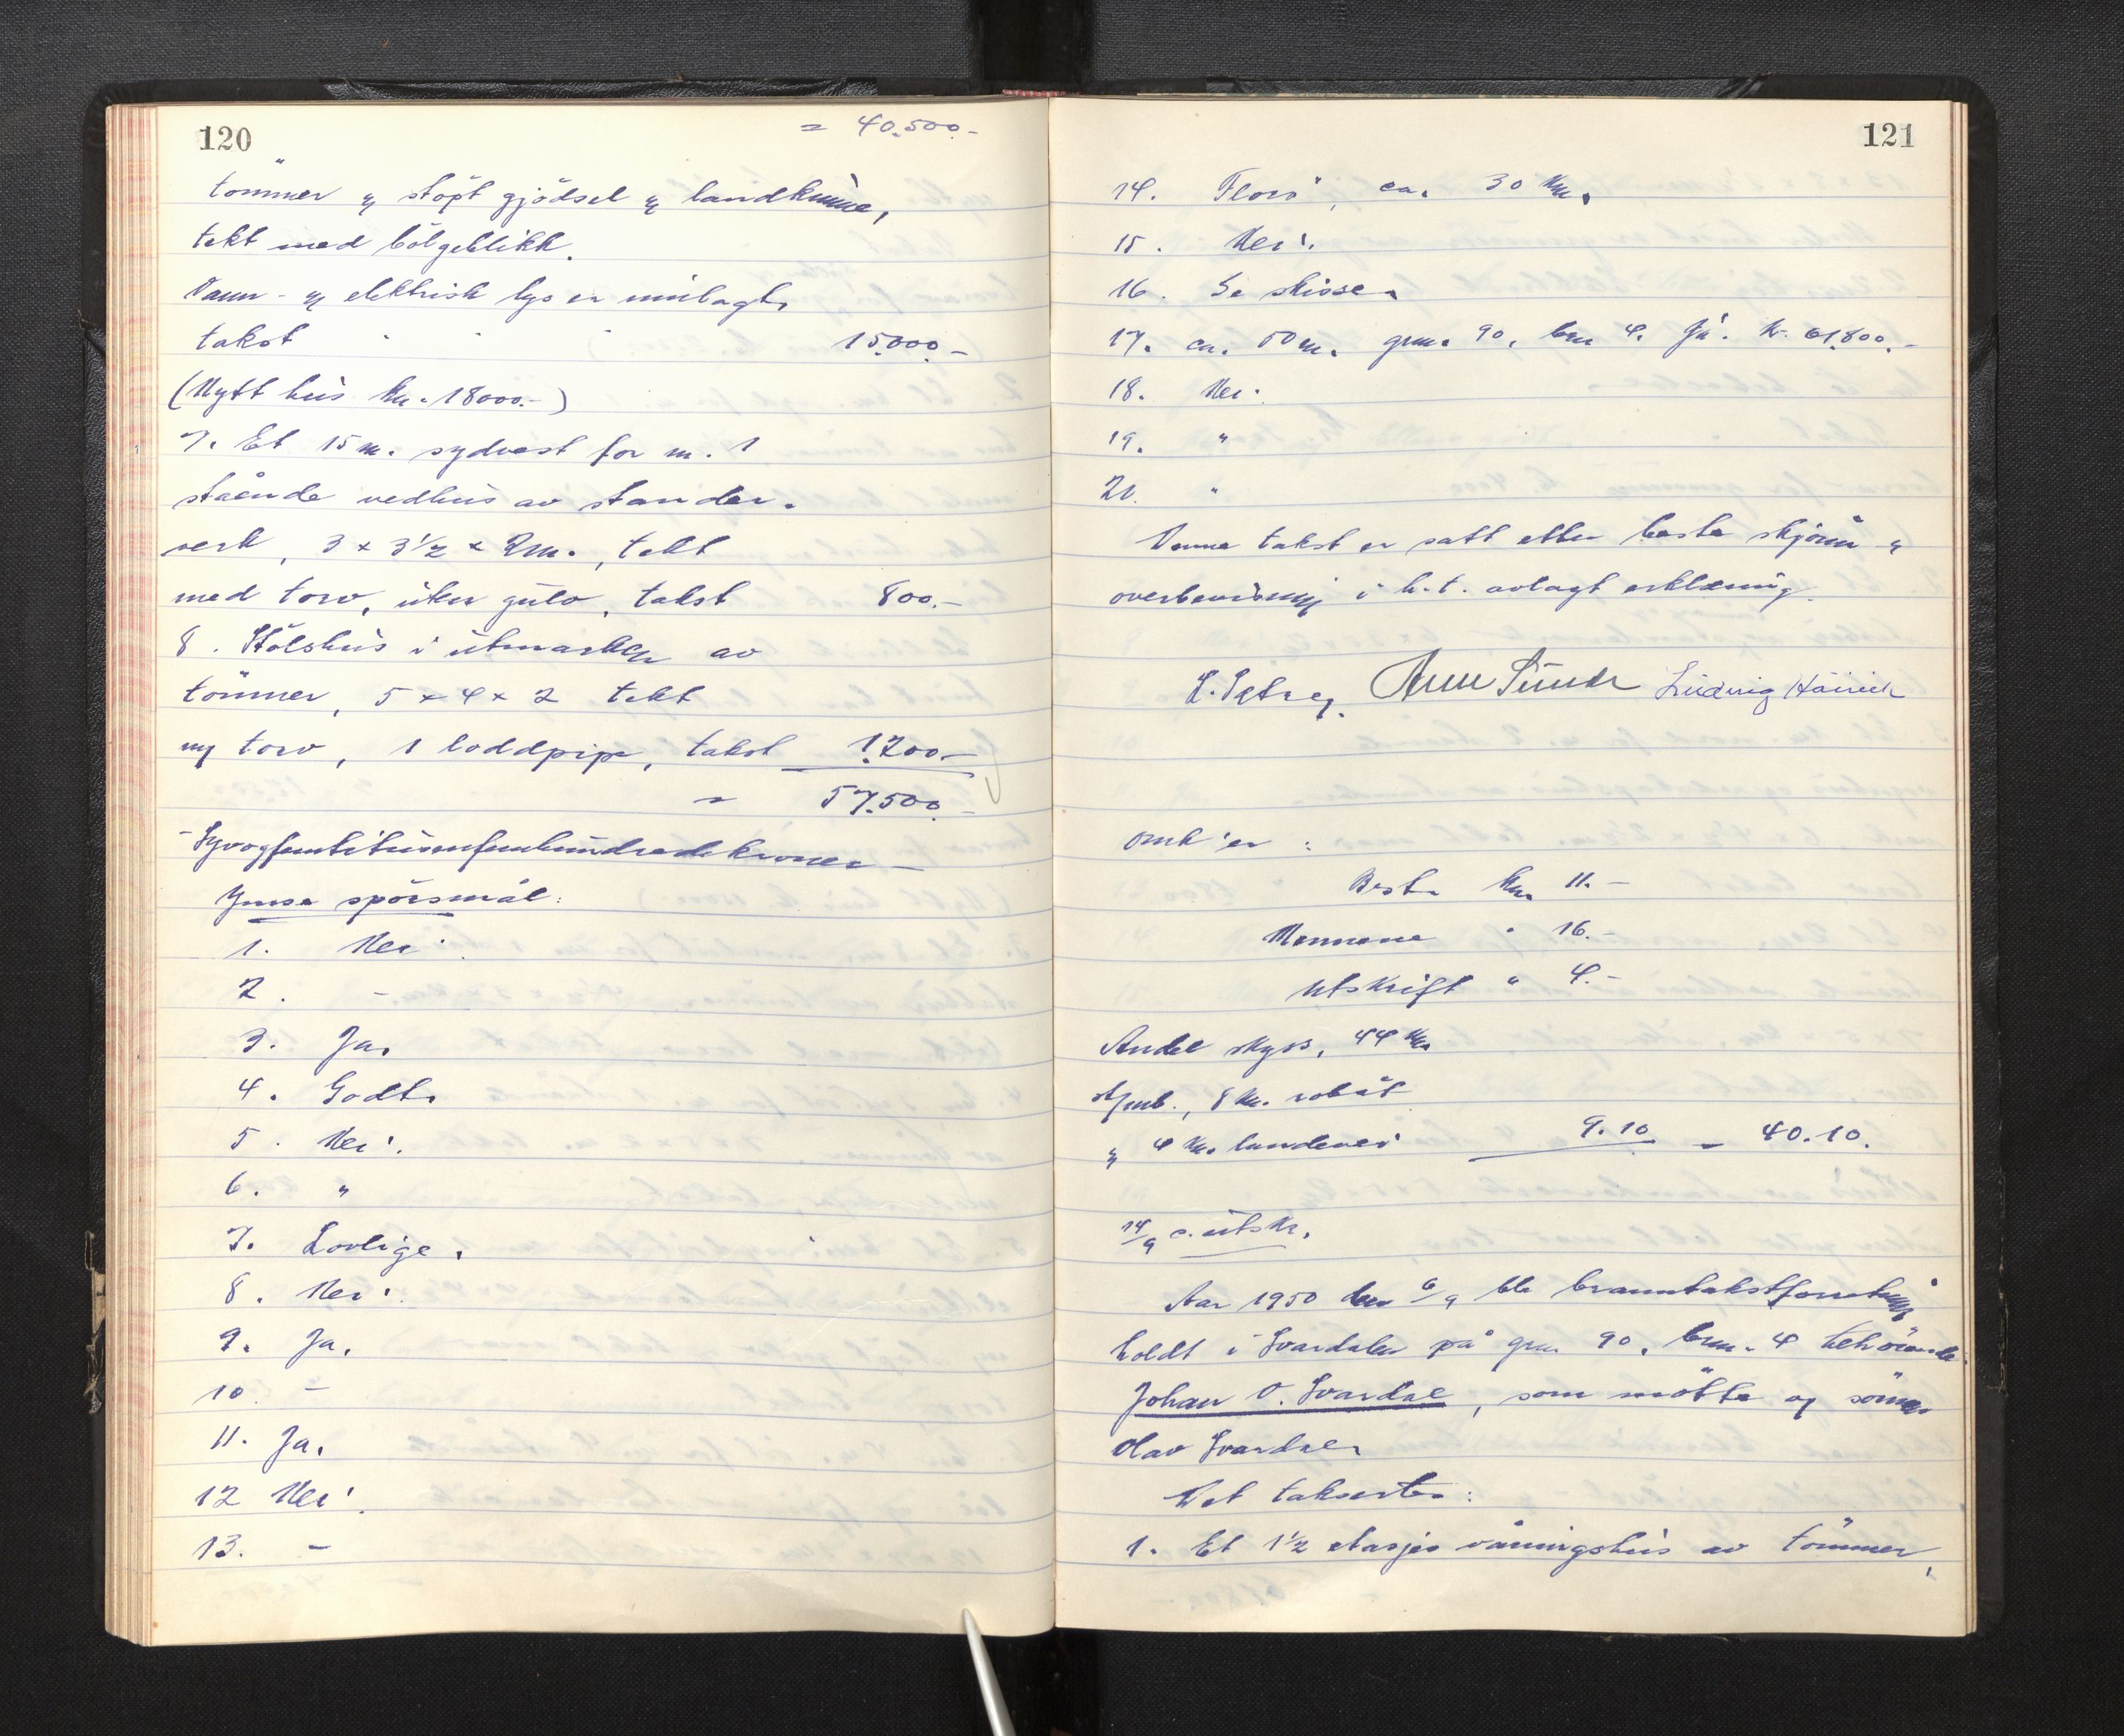 120
= 40.500.-
tömmer og stöpt gjödsel og landkinne,
tekt med bölgeblikk.
Vann- og elektrisk lys er innlagt.
takst 15.000.-
(Nytt hus kr. 18000.-)
7. Et 15 m. sydvest for nr. 1
stående vedhus av stander-
verk, 3 x 3½ x 2 m., tekt
med torv, uten gulv, takst 800.-
8. Stölshus i utmarken av
tömmer, 5 x 4 x 2 tekt
og torv, 1 loddpipe, takst 1.200.-
= 57.500.-
Syvogfemtitusenfemhundredekroner -
Ymse spörsmål:
1. Nei.
2. -
3. Ja.
4. Godt.
5. Nei.
6. "
7. Lovlige.
8. Nei.
9. Ja.
10. -
11. Ja.
12 Nei.
13. -
121
14. Florö, ca. 30 km.
15. Nei.
16. Se skisse.
17. ca. 50 m. grn. 90, brn 4. Ja. kr. 61.800.-
18. Nei.
19. "
20. "
Denne takst er satt etter beste skjönn og
overbevisning i h.t. avlagt erklæring.
Ludvig
omk'er :
Best. kr. 11.-
Mennene " 16.-
Utskrift " 4.-
Andel skyss, 44 km
, 8 km. robåt
og 4 km. landevei 9.10 = 40.10.
14/9 s. utskr.
Aar 1950 den 6/9 ble branntakstforretning
holdt i Svardalen på grn 90, brn. 4 tehörende
Johan O. Svardal, som mötte og sönnen
Olav Svardal.
Det takserte :
1. Et 1½ etasjes våningshus av tömmer,